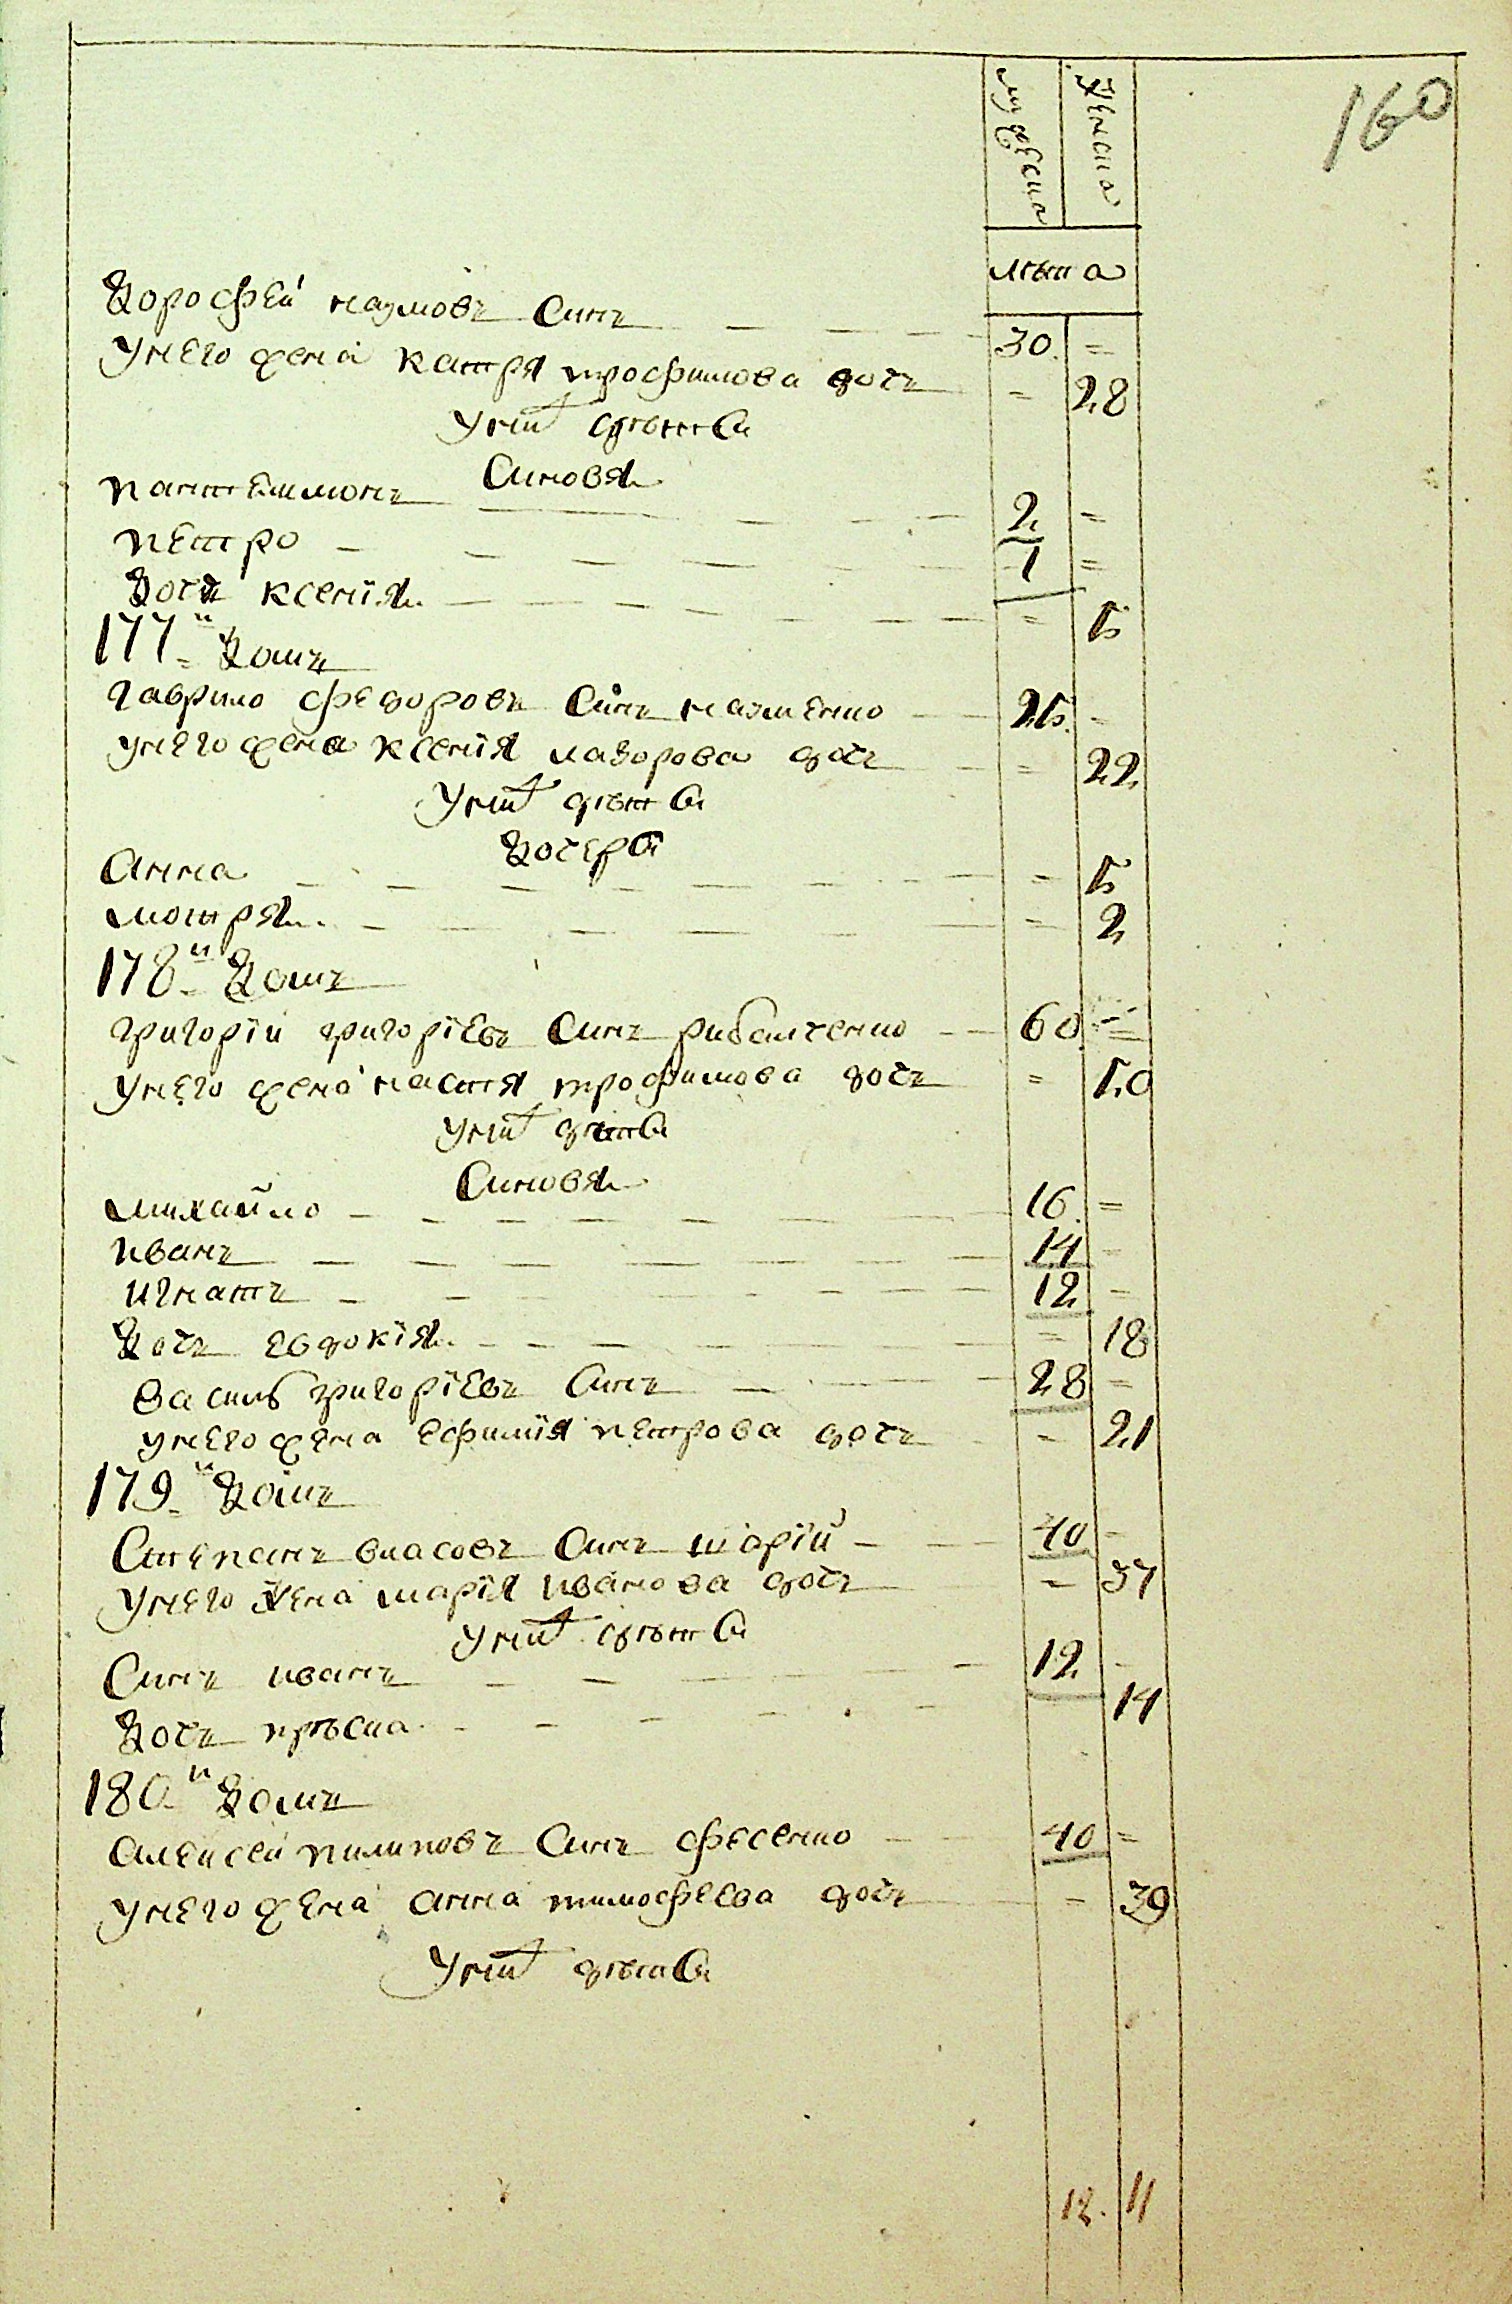 160
мужеска женска
лѣта
Дорофей наумовъ Синъ 30. =
Унего жена катря трофимова дочъ = 28
Унихъ дѣти
Синовя
пантелимонъ 2 =
петро 1 =
Дочъ ксенія = 5
177й Домъ
гаврило федоровъ Синъ науменко 25. =
унего жена ксенія лазорова дочъ = 22
Унихъ дѣти
Дочери
Анна = 5
мотря = 2
178й Домъ
григорій григоріевъ Синъ рибалченко 60 =
Унего жена настя трофимова дочъ = 50
Унихъ дѣти
Синовя
михайло 16. =
иванъ 14 =
игнатъ 12 =
Дочъ евдокія = 18
василь григоріевъ Синъ 28 =
унего жена ефимія петрова дочъ = 21
179й Домъ
Степанъ власовъ Синъ шарій 40 =
Унего жена марія иванова дочъ = 37
Унихъ дѣти
Синъ иванъ 12 =
Дочъ пріска 14
180й Домъ
алексей пилиповъ Синъ фесенко 40 =
унего жена анна тимофеева дочъ = 39
Унихъ дѣти
12. 11